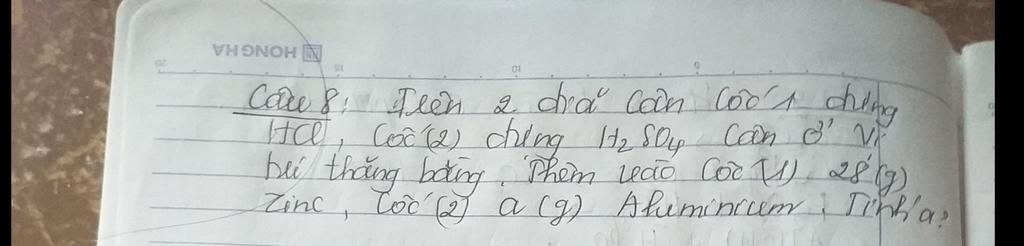 HONG HA
20 15 10 5
Câu 8: Trên 2 đĩa cân Cốc 1 chứng
HCl, Cốc (2) chứng H2SO4 Cân ở Vị
trí thăng bằng. Thêm vào Cốc (1) 28 (g)
Zinc, Cốc (2) a (g) Aluminium. Tính a?